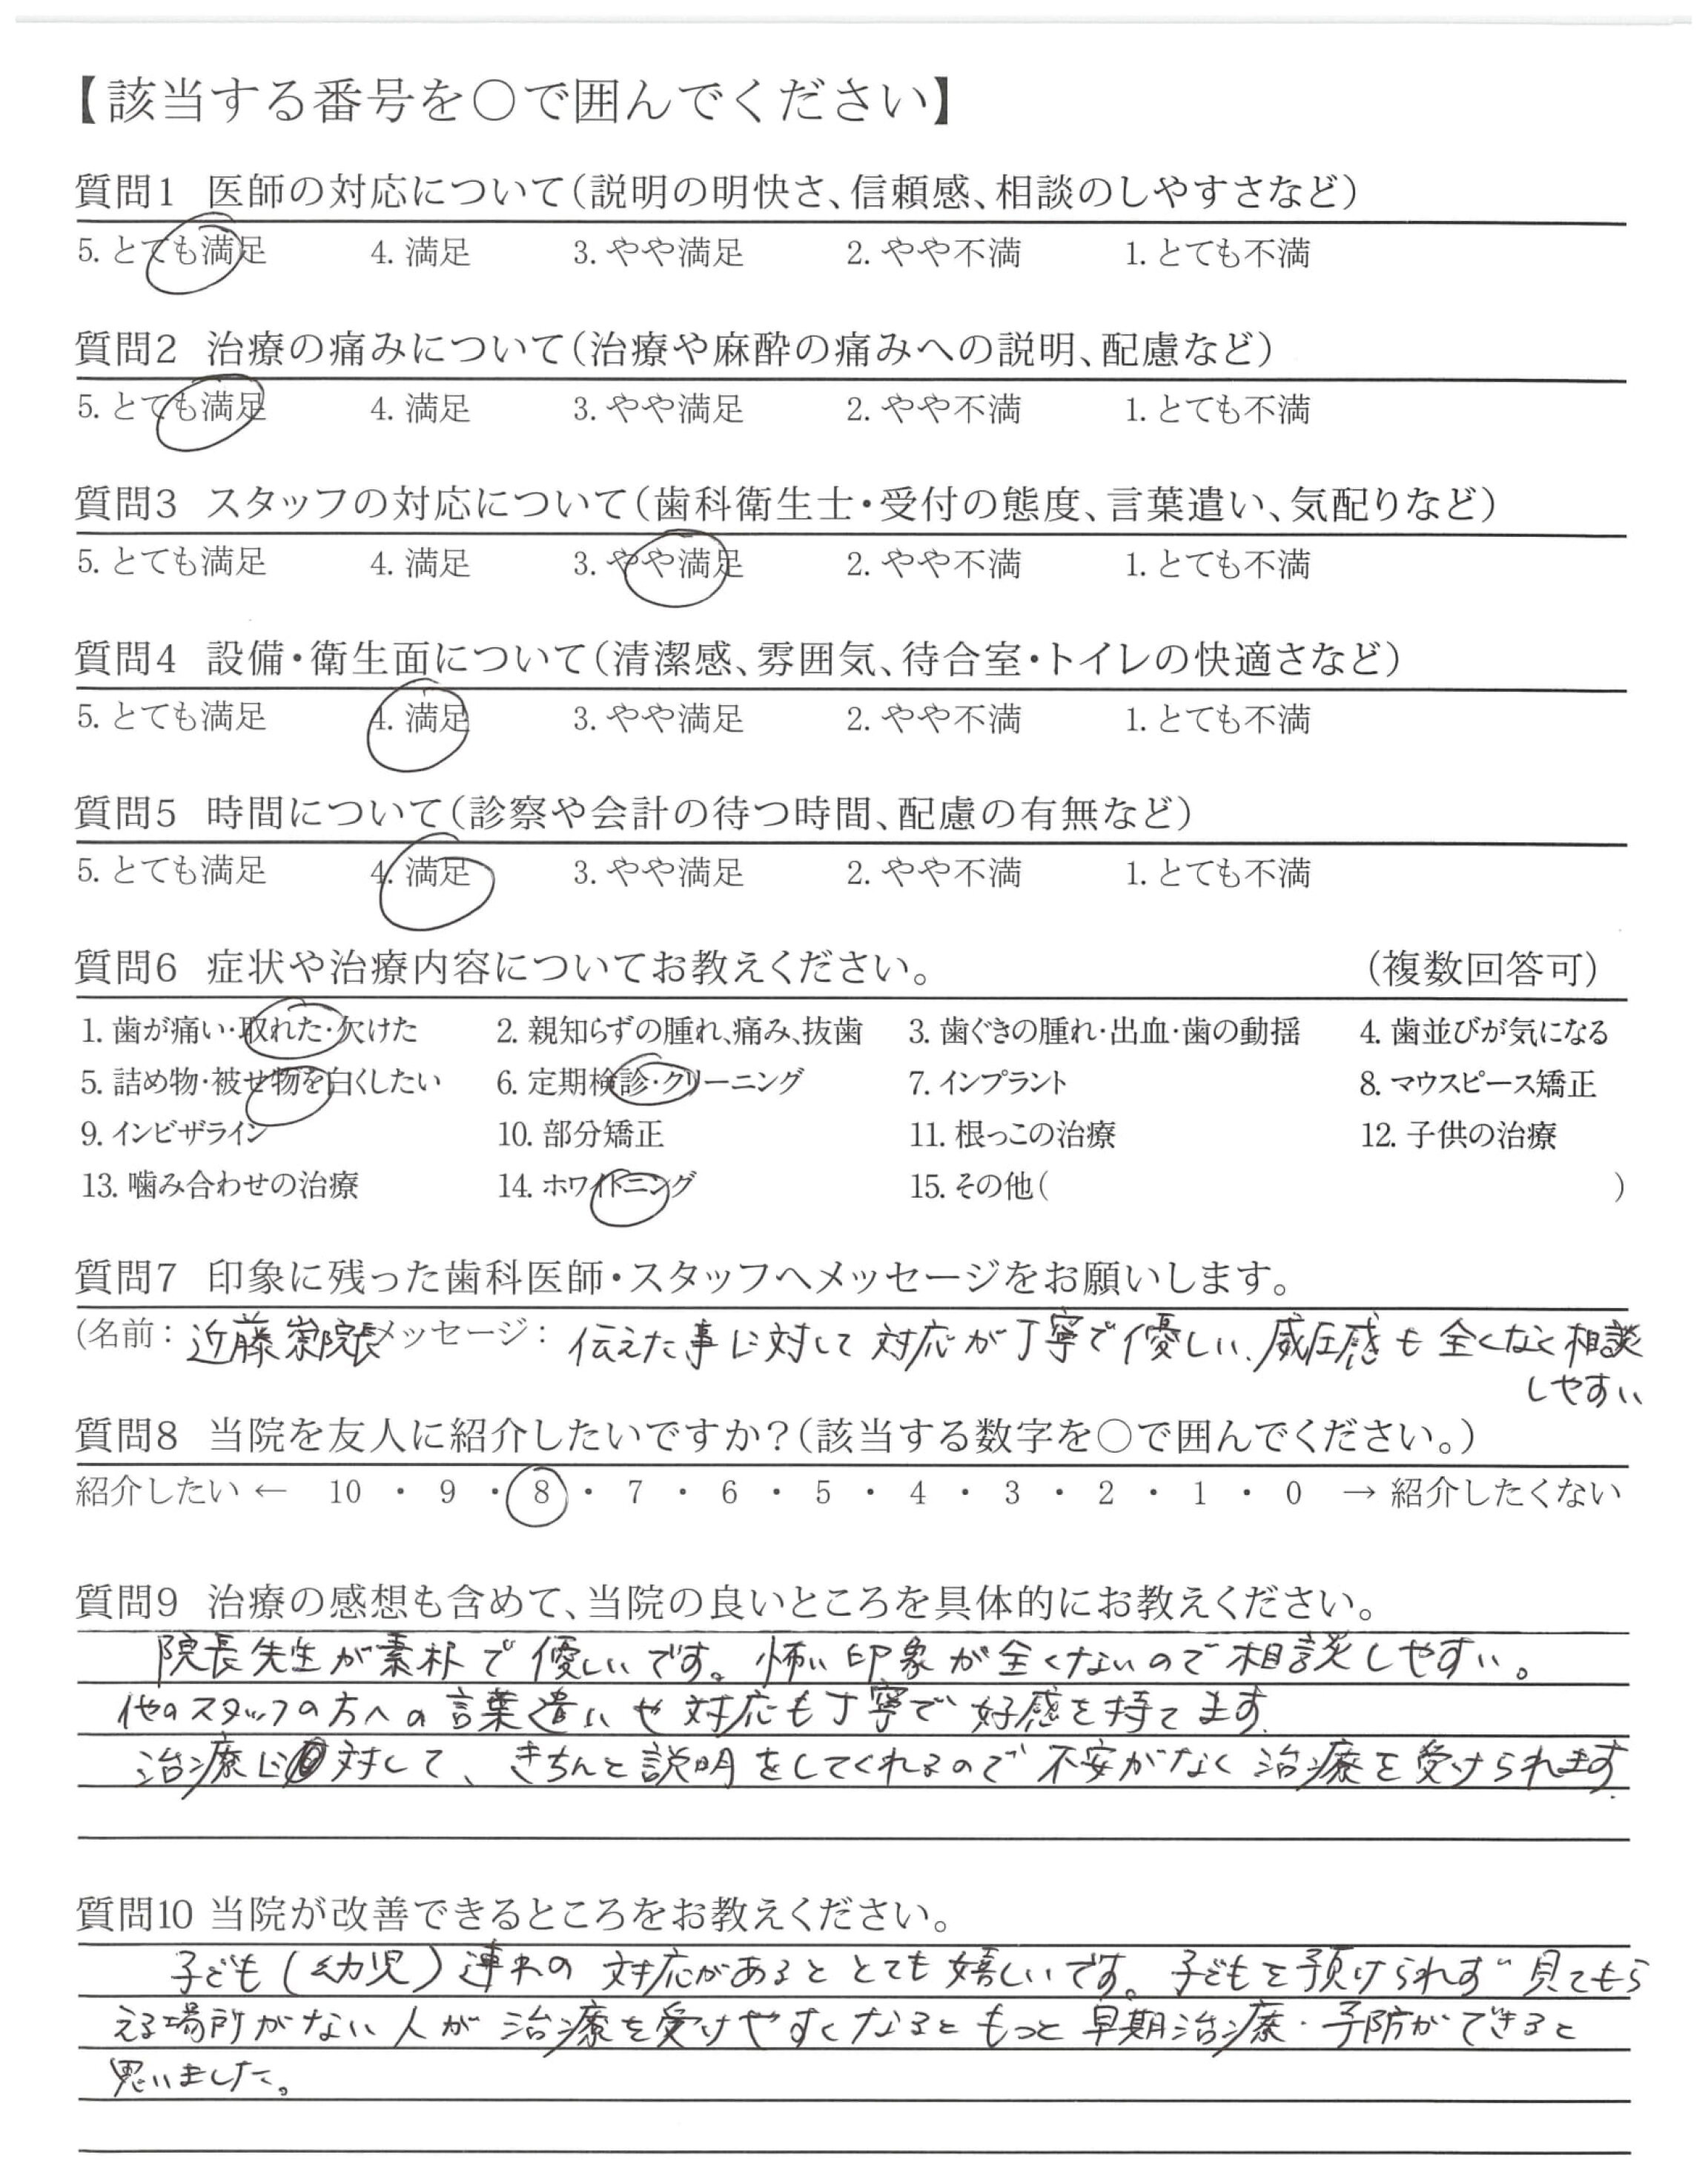 【該当する番号を○で囲んでください】
質問1 医師の対応について(説明の明快さ、信頼感、相談のしやすさなど)
5. とても満足 4. 満足 3. やや満足 2. やや不満 1. とても不満
質問2 治療の痛みについて(治療や麻酔の痛みへの説明、配慮など)
5. とても満足 4. 満足 3. やや満足 2. やや不満 1. とても不満
質問3 スタッフの対応について(歯科衛生士・受付の態度、言葉遣い、気配りなど)
5. とても満足 4. 満足 3. やや満足 2. やや不満 1. とても不満
質問4 設備・衛生面について(清潔感、雰囲気、待合室・トイレの快適さなど)
5. とても満足 4. 満足 3. やや満足 2. やや不満 1. とても不満
質問5 時間について(診察や会計の待つ時間、配慮の有無など)
5. とても満足 4. 満足 3. やや満足 2. やや不満 1. とても不満
質問6 症状や治療内容についてお教えください。 (複数回答可)
1. 歯が痛い・取れた・欠けた 2. 親知らずの腫れ、痛み、抜歯 3. 歯ぐきの腫れ・出血・歯の動揺 4. 歯並びが気になる
5. 詰め物・被せ物を白くしたい 6. 定期検診・クリーニング 7. インプラント 8. マウスピース矯正
9. インビザライン 10. 部分矯正 11. 根っこの治療 12. 子供の治療
13. 噛み合わせの治療 14. ホワイトニング 15. その他( )
質問7 印象に残った歯科医師・スタッフへメッセージをお願いします。
(名前: 近藤崇院長 メッセージ: 伝えた事に対して対応が丁寧で優しい、威圧感も全くなく相談
しやすい
質問8 当院を友人に紹介したいですか?(該当する数字を○で囲んでください。)
紹介したい ← 10 ・ 9 ・ 8 ・ 7 ・ 6 ・ 5 ・ 4 ・ 3 ・ 2 ・ 1 ・ 0 → 紹介したくない
質問9 治療の感想も含めて、当院の良いところを具体的にお教えください。
院長先生が素朴で優しいです。怖い印象が全くないので相談しやすい。
他のスタッフの方への言葉遣いや対応も丁寧で好感を持てます.
治療に対して、きちんと説明をしてくれるので不安がなく治療を受けられます.
質問10 当院が改善できるところをお教えください。
子ども(幼児)連れの対応があるととても嬉しいです。子どもを預けられず見てもら
える場所がない人が治療を受けやすくなるともっと早期治療・予防ができると
思いました。